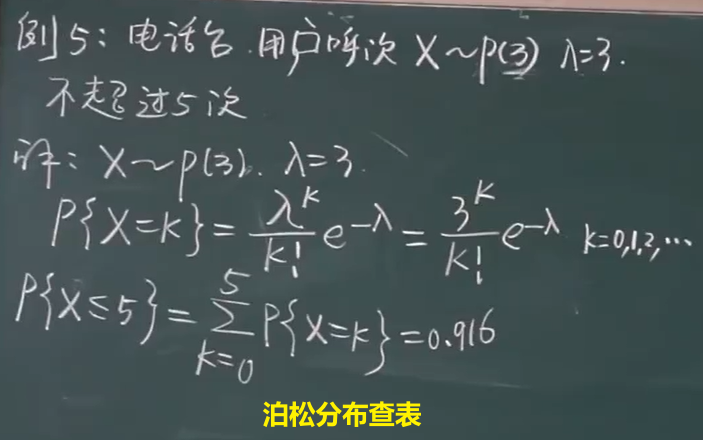 例5：电话台.用户呼次 X~P(3) λ=3.
不超过5次
解：X~P(3). λ=3.
P{X=K}=λ^K/K! e^-λ = 3^K/K! e^-λ K=0,1,2,…
P{X≤5}=∑_{K=0}^{5} P{X=K}=0.916
泊松分布查表